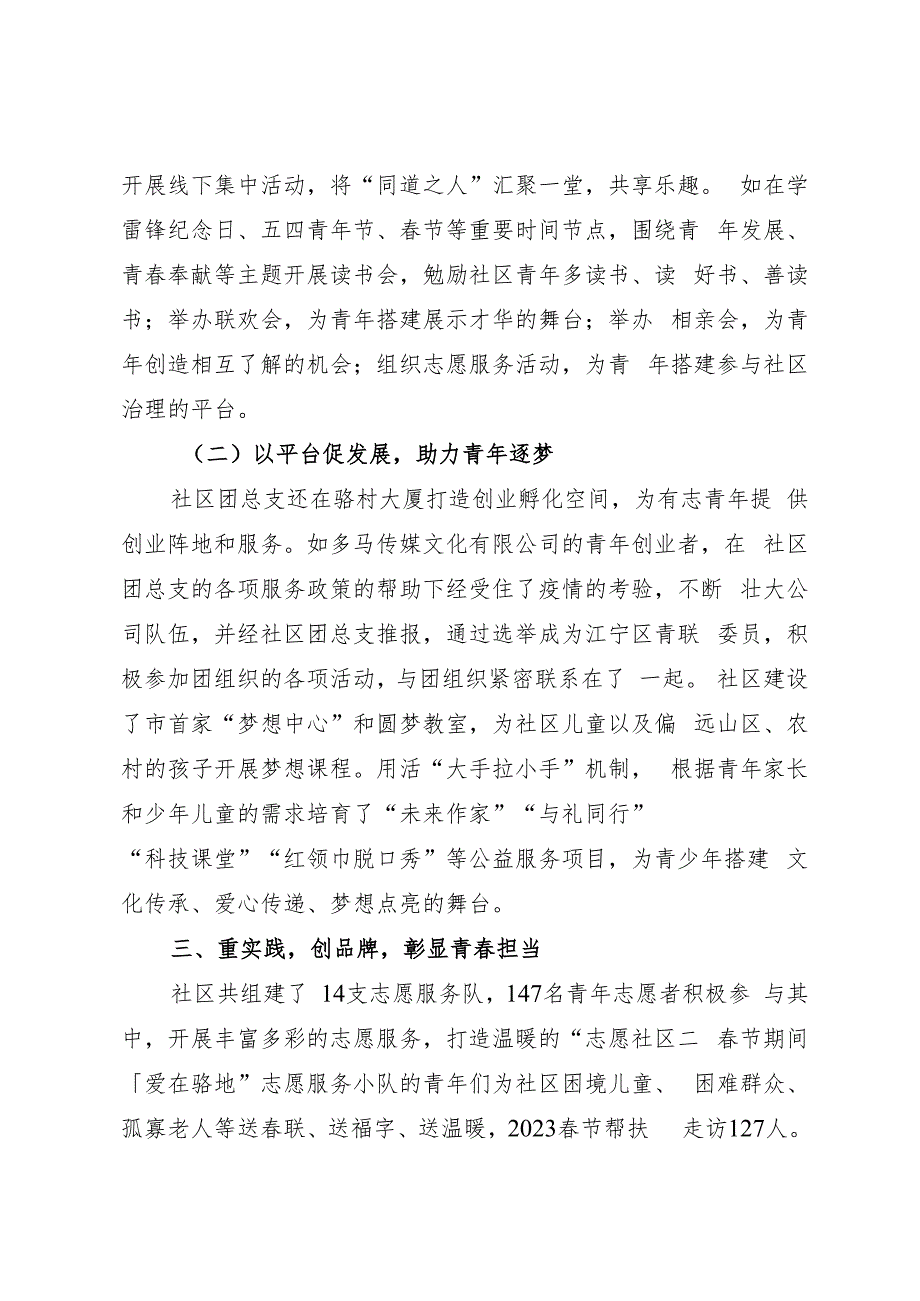 开展线下集中活动，将“同道之人”汇聚一堂，共享乐趣。 如在学
雷锋纪念日、五四青年节、春节等重要时间节点，围绕青 年发展、
青春奉献等主题开展读书会，勉励社区青年多读书、读 好书、善读
书；举办联欢会，为青年搭建展示才华的舞台；举办 相亲会，为青
年创造相互了解的机会；组织志愿服务活动，为青 年搭建参与社区
治理的平台。
（二）以平台促发展，助力青年逐梦
社区团总支还在骆村大厦打造创业孵化空间，为有志青年提 供
创业阵地和服务。如多马传媒文化有限公司的青年创业者，在 社区
团总支的各项服务政策的帮助下经受住了疫情的考验，不断 壮大公
司队伍，并经社区团总支推报，通过选举成为江宁区青联 委员，积
极参加团组织的各项活动，与团组织紧密联系在了 一起。 社区建设
了市首家“梦想中心”和圆梦教室，为社区儿童以及偏 远山区、农
村的孩子开展梦想课程。用活“大手拉小手”机制， 根据青年家长
和少年儿童的需求培育了“未来作家”“与礼同行”
“科技课堂”“红领巾脱口秀”等公益服务项目，为青少年搭建 文
化传承、爱心传递、梦想点亮的舞台。
三、重实践，创品牌，彰显青春担当
社区共组建了 14支志愿服务队，147名青年志愿者积极参 与其
中，开展丰富多彩的志愿服务，打造温暖的“志愿社区二 春节期间
「爱在骆地”志愿服务小队的青年们为社区困境儿童、 困难群众、
孤寡老人等送春联、送福字、送温暖，2023春节帮扶 走访127人。